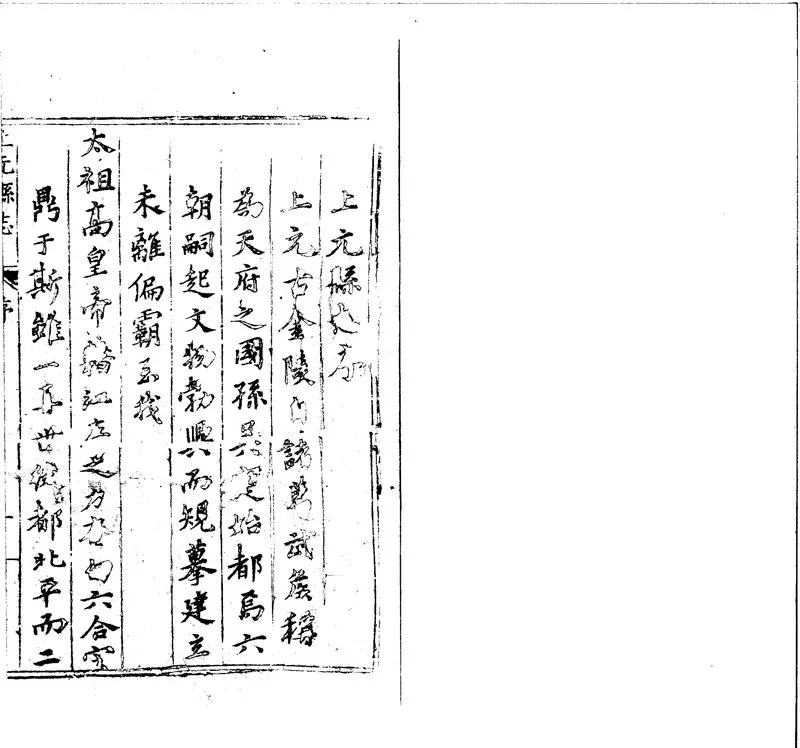 上元縣志序
上元古金陵自諸葛武侯稱
為天府之國孫吳定始都焉六
朝嗣起文物勃興而規摹建立
未離偏霸至我
太祖高皇帝江左之六合定
鼎于斯雖一再世從都北平而二
上元縣志
序